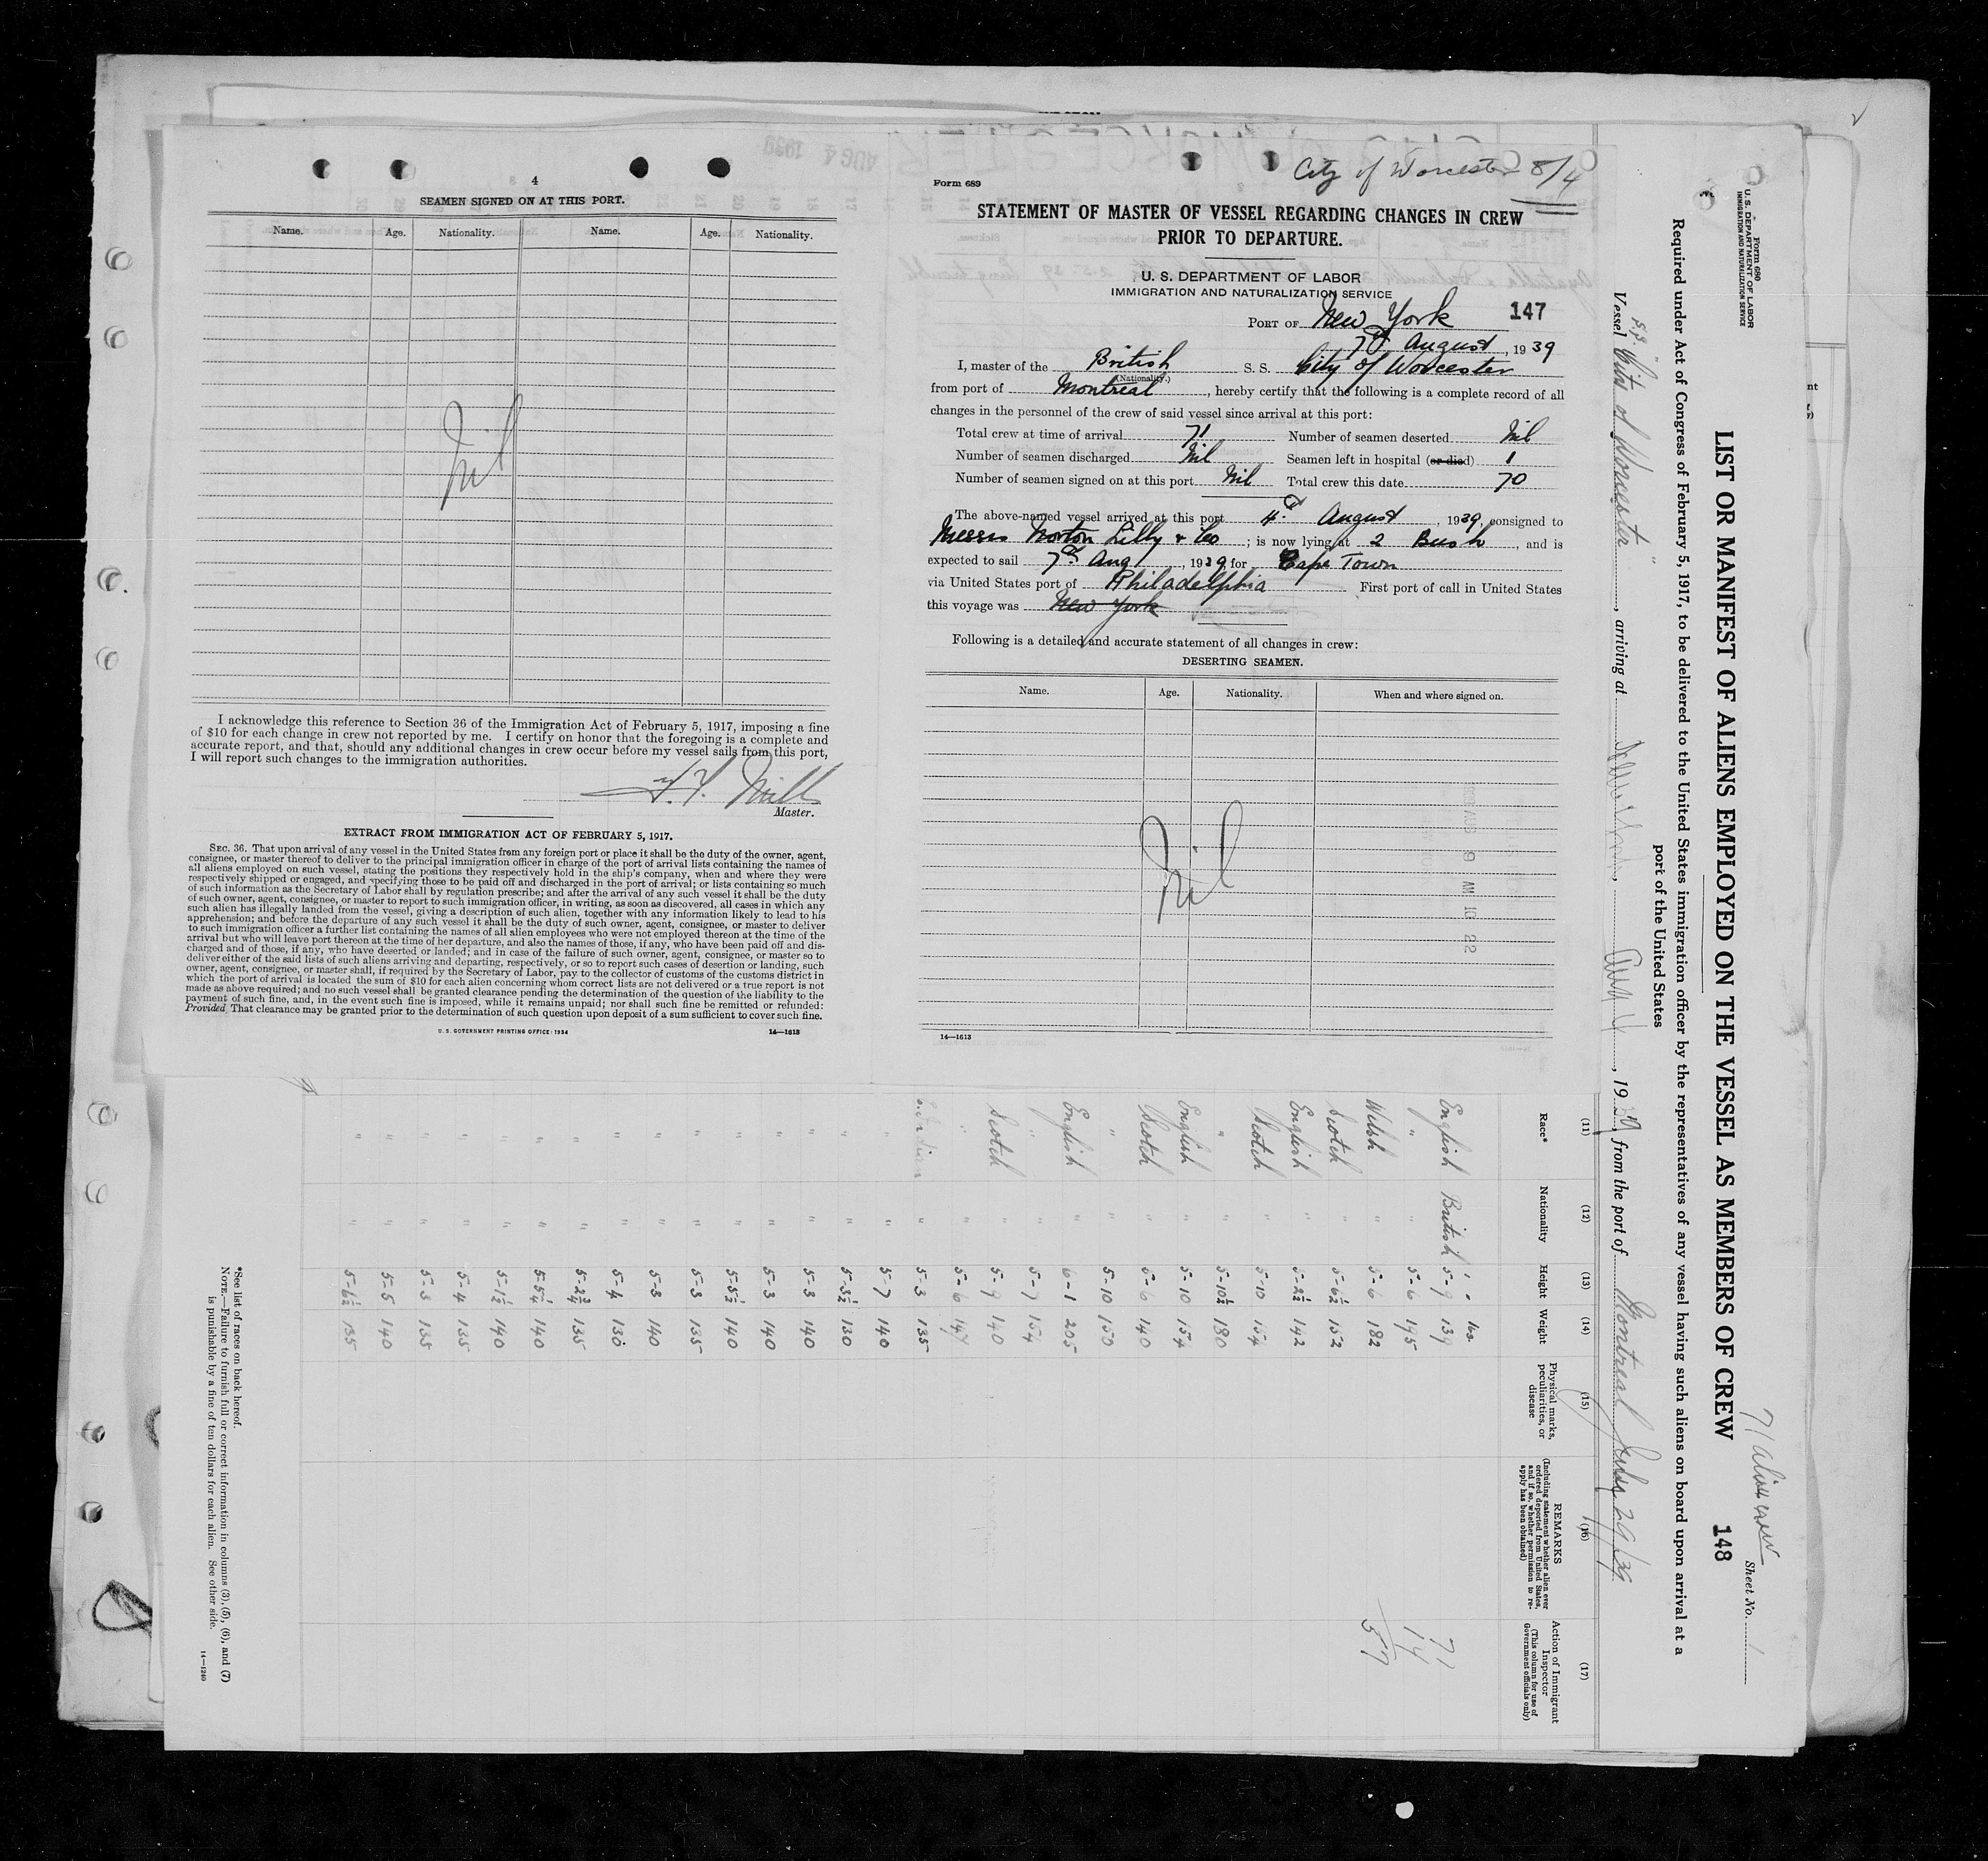 4
SEAMEN SIGNED ON AT THIS PORT.
Name. Age. Nationality. Name. Age. Nationality.
Nil
I acknowledge this reference to Section 36 of the Immigration Act of February 5, 1917, imposing a fine
of $10 for each change in crew not reported by me. I certify on honor that the foregoing is a complete and
accurate report, and that, should any additional changes in crew occur before my vessel sails from this port,
I will report such changes to the immigration authorities.
Master.
EXTRACT FROM IMMIGRATION ACT OF FEBRUARY 5, 1917.
SEC. 36. That upon arrival of any vessel in the United States from any foreign port or place it shall be the duty of the owner, agent,
consignee, or master thereof to deliver to the principal immigration officer in charge of the port of arrival lists containing the names of
all aliens employed on such vessel, stating the positions they respectively hold in the ship's company, when and where they were
respectively shipped or engaged, and specifying those to be paid off and discharged in the port of arrival; or lists containing so much
of such information as the Secretary of Labor shall by regulation prescribe; and after the arrival of any such vessel it shall be the duty
of such owner, agent, consignee, or master to report to such immigration officer, in writing, as soon as discovered, all cases in which any
such alien has illegally landed from the vessel, giving a description of such alien, together with any information likely to lead to his
apprehension; and before the departure of any such vessel it shall be the duty of such owner, agent, consignee, or master to deliver
to such immigration officer a further list containing the names of all alien employees who were not employed thereon at the time of the
arrival but who will leave port thereon at the time of her departure, and also the names of those, if any, who have been paid off and dis-
charged and of those, if any, who have deserted or landed; and in case of the failure of such owner, agent, consignee, or master so to
deliver either of the said lists of such aliens arriving and departing, respectively, or so to report such cases of desertion or landing, such
owner, agent, consignee, or master shall, if required by the Secretary of Labor, pay to the collector of customs of the customs district in
which the port of arrival is located the sum of $10 for each alien concerning whom correct lists are not delivered or a true report is not
made as above required; and no such vessel shall be granted clearance pending the determination of the question of the liability to the
payment of such fine, and, in the event such fine is imposed, while it remains unpaid; nor shall such fine be remitted or refunded:
Provided, That clearance may be granted prior to the determination of such question upon deposit of a sum sufficient to cover such fine.
U. S. GOVERNMENT PRINTING OFFICE: 1934 14—1613
City of Worcester 8/4
Form 689
STATEMENT OF MASTER OF VESSEL REGARDING CHANGES IN CREW
PRIOR TO DEPARTURE.
U. S. DEPARTMENT OF LABOR
IMMIGRATION AND NATURALIZATION SERVICE
PORT OF New York 147
7th August, 1939
I, master of the British S. S. City of Worcester
(Nationality.)
from port of Montreal, hereby certify that the following is a complete record of all
changes in the personnel of the crew of said vessel since arrival at this port:
Total crew at time of arrival 71 Number of seamen deserted Nil
Number of seamen discharged Nil Seamen left in hospital (or died) 1
Number of seamen signed on at this port Nil Total crew this date 70
The above-named vessel arrived at this port 4th August, 1939, consigned to
Messrs Norton Lilly & Co; is now lying at 2 Bush, and is
expected to sail 7th Aug, 1939, for Cape Town
via United States port of Philadelphia First port of call in United States
this voyage was New York
Following is a detailed and accurate statement of all changes in crew:
DESERTING SEAMEN.
Name. Age. Nationality. When and where signed on.
Nil
9 AM 10 22
14—1613
Form 680
U. S. DEPARTMENT OF LABOR
IMMIGRATION AND NATURALIZATION SERVICE
71 alien crew
Sheet No. 1
LIST OR MANIFEST OF ALIENS EMPLOYED ON THE VESSEL AS MEMBERS OF CREW 148
Required under Act of Congress of February 5, 1917, to be delivered to the United States immigration officer by the representatives of any vessel having such aliens on board upon arrival at a
port of the United States
Vessel S.S. "City of Worcester", arriving at New York, Aug 4, 1939, from the port of Montreal July 29/39
(11) (12) (13) (14) (15) (16) (17)
Race* Nationality Height Weight Physical marks, peculiarities, or disease REMARKS (Including statement whether alien ever ordered deported from United States, and if so, whether permission to re-apply has been obtained) Action of Immigrant Inspector (This column for use of Government officials only)
English British 5-9 139 71
" " 5-6 195 14
Welsh " 5-6 182 57
Scotch " 5-6½ 152
English " 5-2½ 142
Scotch " 5-10 154
" " 5-10½ 180
English " 5-10 154
Scotch " 5-6 140
" " 5-10 150
English " 6-1 205
" " 5-7 154
Scotch " 5-9 140
" " 5-6 147
" 5-3 135
" " 5-7 140
" " 5-3½ 130
" " 5-3 140
" " 5-3 140
" " 5-5½ 140
" " 5-3 135
" " 5-3 140
" " 5-4 130
" " 5-2¾ 135
" " 5-5¼ 140
" " 5-1½ 140
" " 5-4 135
" " 5-3 135
" " 5-5 140
" " 5-6½ 135
*See list of races on back hereof.
NOTE.—Failure to furnish full or correct information in columns (3), (5), (6), and (7)
is punishable by a fine of ten dollars for each alien. See other side.
14—1240